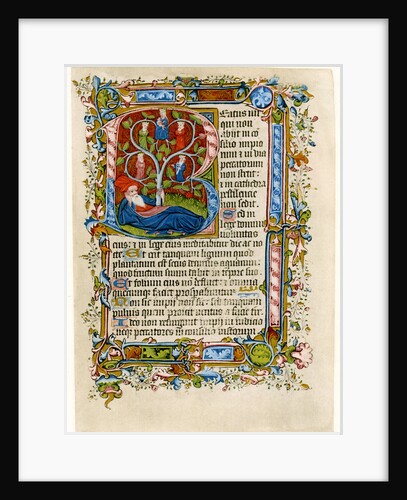 Eatus uir
qui non
abijt in co
silio impio
rum : in via
peccatorum
non stetit :
: in cathedra
pestilencie
non sedit.
Sed in
lege domini
uoluntas
eius : : in lege eius meditabitur die ac no
cte. Et erit tanquam lignum quod
plantatum est secus decursus aquarum :
quod fructum suum dabit in tempore suo
Et folium eius non defluet : : omnia
quecunque faciet prosperabuntur
Non sic impij non sic : sed tanquam
puluis quem proicit uentus a facie terre
Ideo non resurgunt impij in iudicio
neque peccatores in consilio iustorum